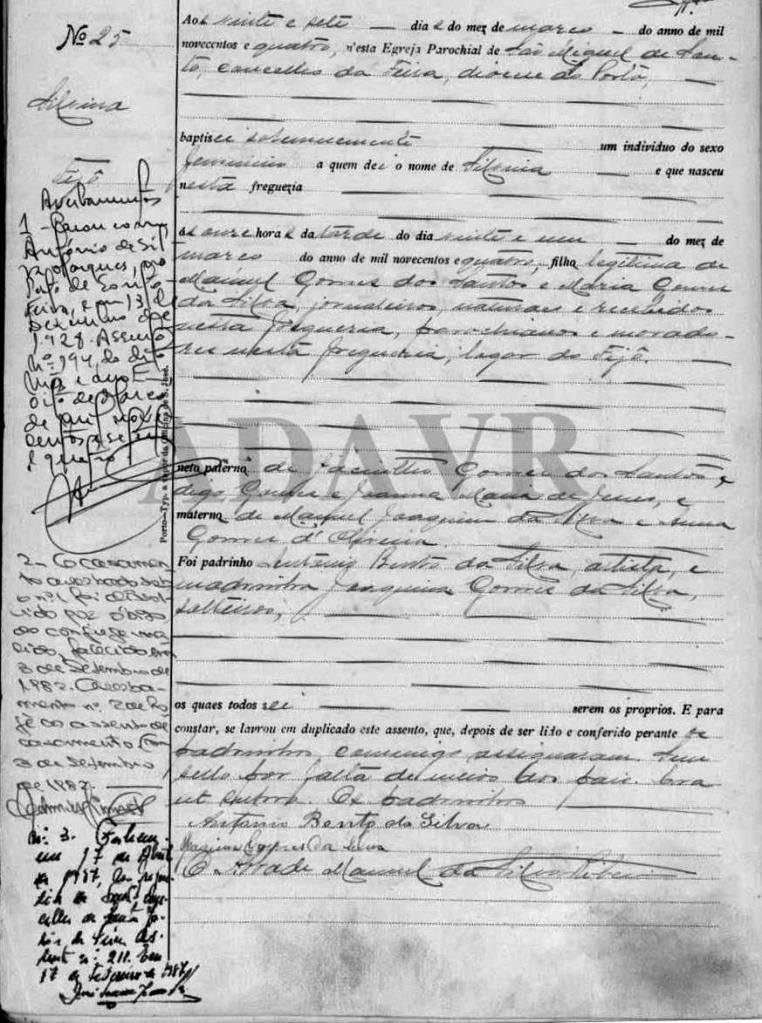 Nº 25
Silvina
Fijô
Averbamentos
1 - Casou com
António de Sil
va Marques, no
Posto de
Feira, em 13 de
Dezembro de
1928. Assento
nº 194, do dito
Posto
de Março
de mil nove
centos e
e quatro
2 - O casamen
to averbado sob
o nº 1 foi dissol
vido por óbito
do conjuge ma
rido, falecido em
3 de Setembro de
1982. Averba
mento nº 2 de ho
je ao assento de
casamento. Em
3 de Setembro
de 1982.
Nº 3. Faleceu
em 17 de Abril
de 1987, na fregue
sia de Souto, conce
lho de Santa Ma
ria da Feira. As
sento nº 211. Em
17 de 1987
Porto—Typ. a vapor da Officina de S. José.
Aos vinte e sete dias do mez de março do anno de mil
novecentos e quatro, n'esta Egreja Parochial de São Miguel de Sou-
to, concelho da Feira, diocese do Porto,
baptisei solemnemente um individuo do sexo
femenino a quem dei o nome de Silvina e que nasceu
nesta freguezia
ás onze horas da tarde do dia vinte e um do mez de
março do anno de mil novecentos e quatro, filha legitima de
Manuel Gomes dos Santos e Maria Gomes
da Silva, jornaleiros, naturaes e recebidos
nesta freguezia, parochianos e morado-
res nesta freguezia, logar do Fijô.
ADAVR
neto paterno de Jacintho Gomes dos Santos,
digo, Gomes e Joanna Maria de Jesus, e
materno de Manuel Joaquim da Silva e Anna
Gomes d'Oliveira
Foi padrinho Antonio Bento da Silva, artista, e
madrinha Joaquina Gomes da Silva,
solteiros,
os quaes todos sei serem os proprios. E para
constar, se lavrou em duplicado este assento, que, depois de ser lido e conferido perante os
padrinhos, commigo assignaram. Sem
sello por falta de meios dos pais. Era
ut supra. Os padrinhos
Antonio Bento da Silva
Gomes da Silva
O Abade Manuel da Silva Ribeiro